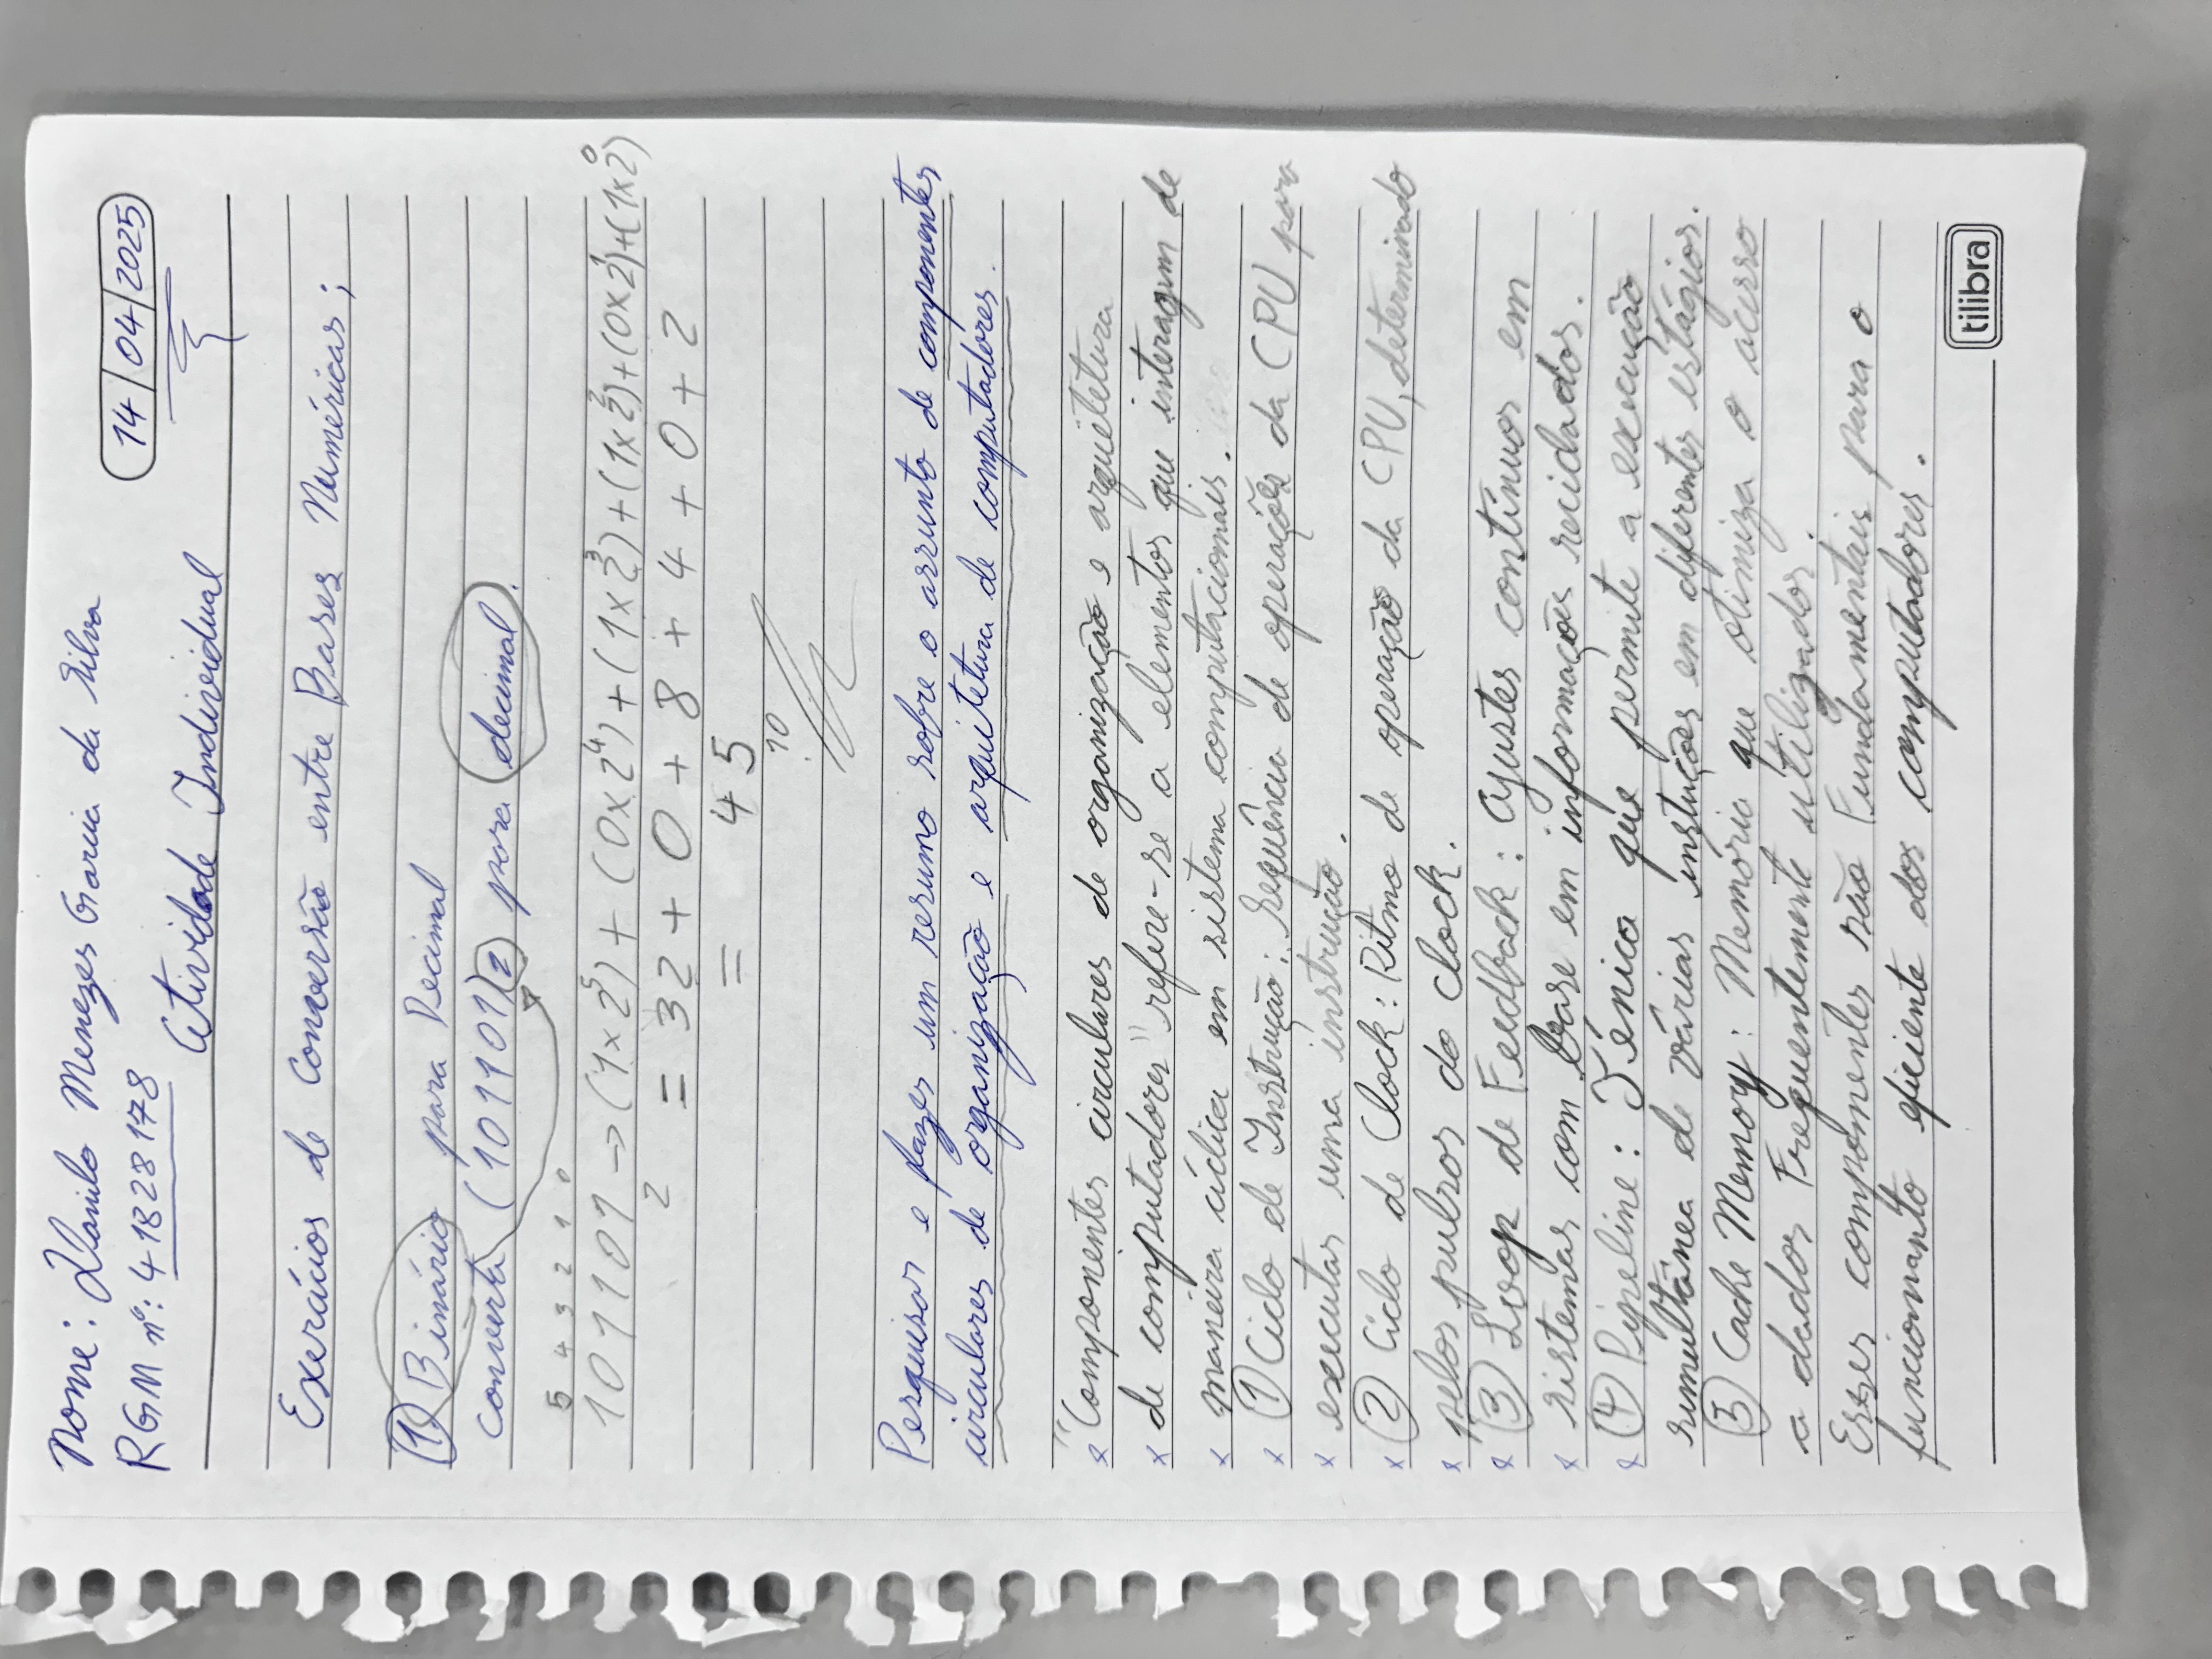 Nome: Danilo Menezes Garcia da Silva
RGM nº: 41828178
14/04/2025
Atividade Individual
Exercícios de Conversão entre Bases Numéricas;
1) Binário para Decimal
converta (101101)2 para decimal.
5 4 3 2 1 0
101101₂ → (1x2⁵) + (0x2⁴) + (1x2³) + (1x2²) + (0x2¹) + (1x2⁰)
= 32 + 0 + 8 + 4 + 0 + 2
= 45₁₀
Pesquisar e fazer um resumo sobre o assunto de componentes
circulares de organização e arquitetura de computadores.
"Componentes circulares de organização e arquitetura
de computadores" refere-se a elementos que interagem de
maneira cíclica em sistema computacionais.
① Ciclo de Instrução: Sequência de operações da CPU para
executar uma instrução.
② Ciclo de Clock: Ritmo de operação da CPU, determinado
pelos pulsos do clock.
③ Loop de Feedback: Ajustes contínuos em
sistemas com base em informações reciclados.
④ Pipeline: Ténica que permite a execução
simultânea de várias instuções em diferentes estágios.
⑤ Cache Memory: Memória que otimiza o acesso
a dados Frequentemente utilizados.
Esses compomentes são Fundamentais para o
funcionanto eficiente dos computadores.
tilibra